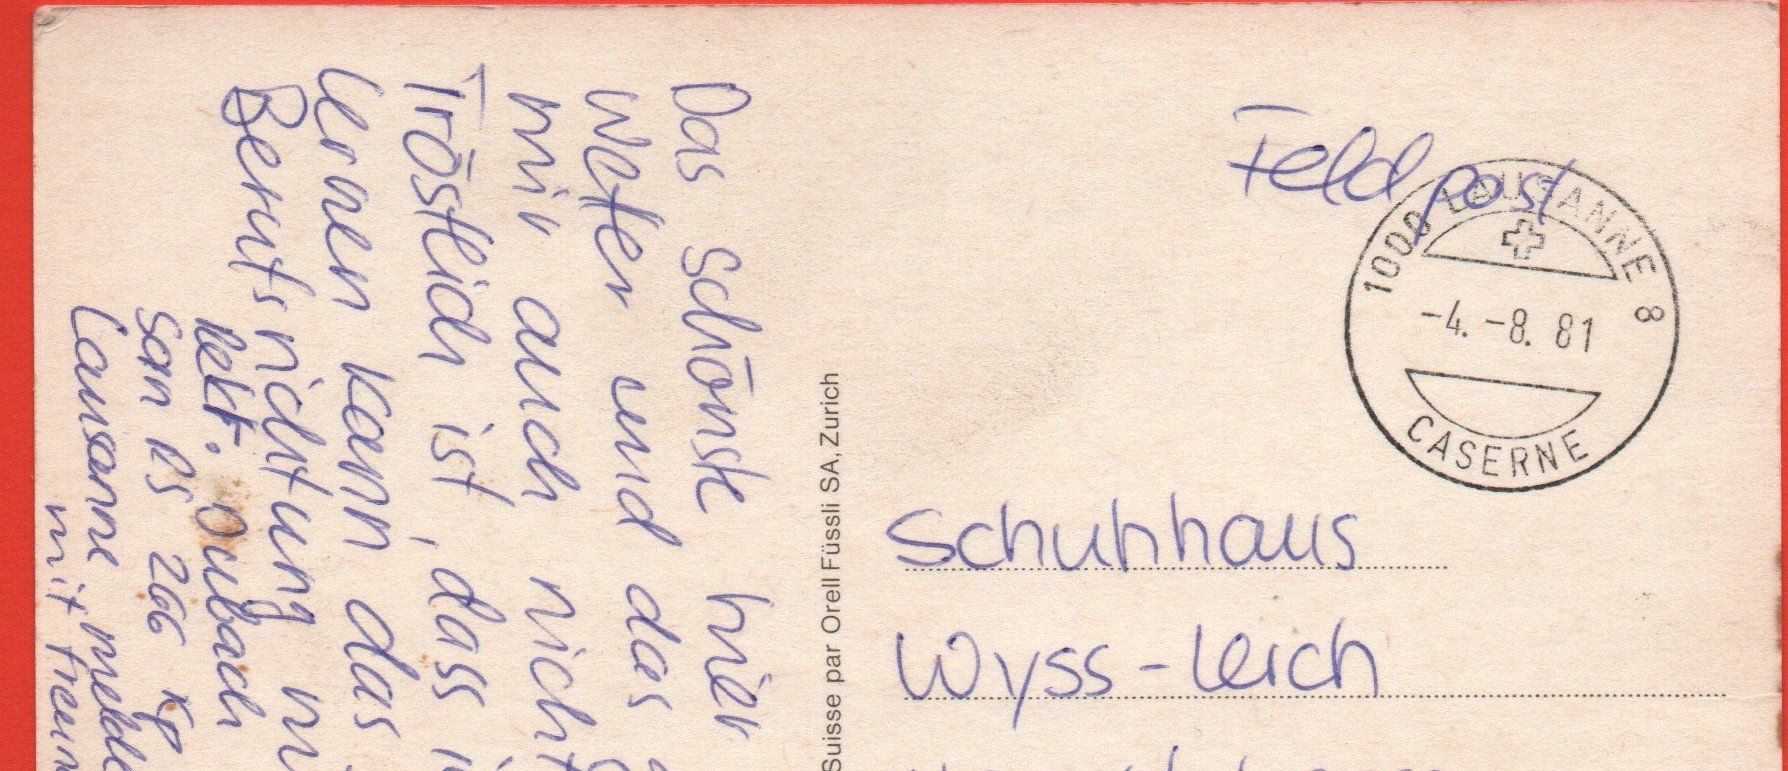 Das schönste hier
Wetter und das
mir auch nicht
Tröstlich ist, dass
lernen kann das
nicht ung
lebt. Dubach
san RS 266 Kp
Lausanne melde
mit freun
Suisse par Orell Füssli SA, Zurich
Feldpost
1000 LAUSANNE 8
-4.-8. 81
CASERNE
Schuhhaus
Wyss-Leich